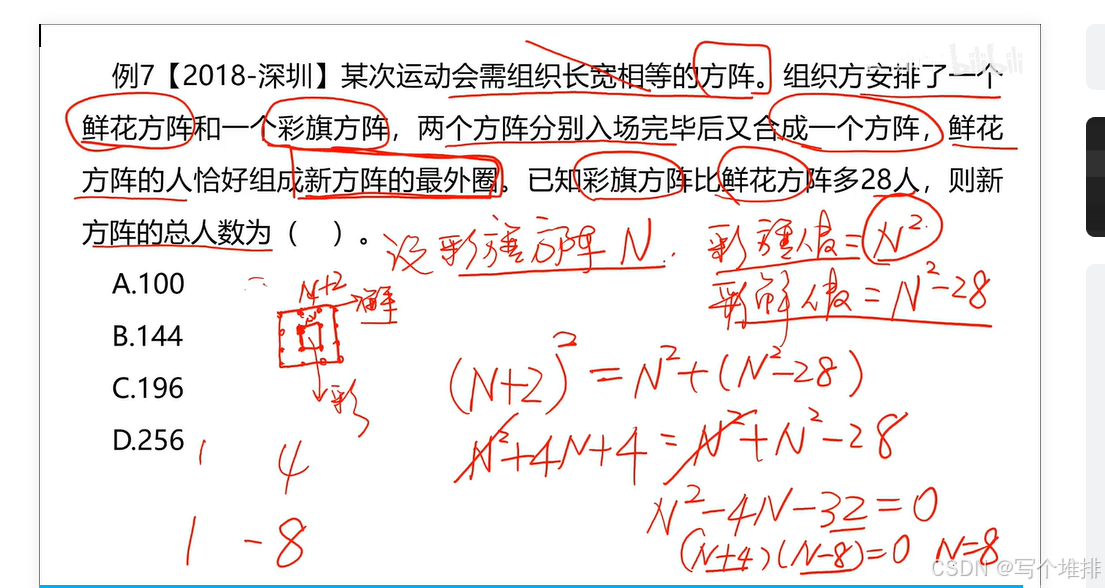 例7【2018-深圳】某次运动会需组织长宽相等的方阵。组织方安排了一个
鲜花方阵和一个彩旗方阵，两个方阵分别入场完毕后又合成一个方阵，鲜花
方阵的人恰好组成新方阵的最外圈。已知彩旗方阵比鲜花方阵多28人，则新
方阵的总人数为（ ）。
设彩旗方阵N. 彩旗人数=N²
A.100
N+2
鲜
彩鲜人数=N²-28
B.144
彩
(N+2)²=N²+(N²-28)
C.196
D.256
N²+4N+4=N²+N²-28
1 4
N²-4N-32=0
1 -8
(N+4)(N-8)=0 N=8
CSDN @写个堆排